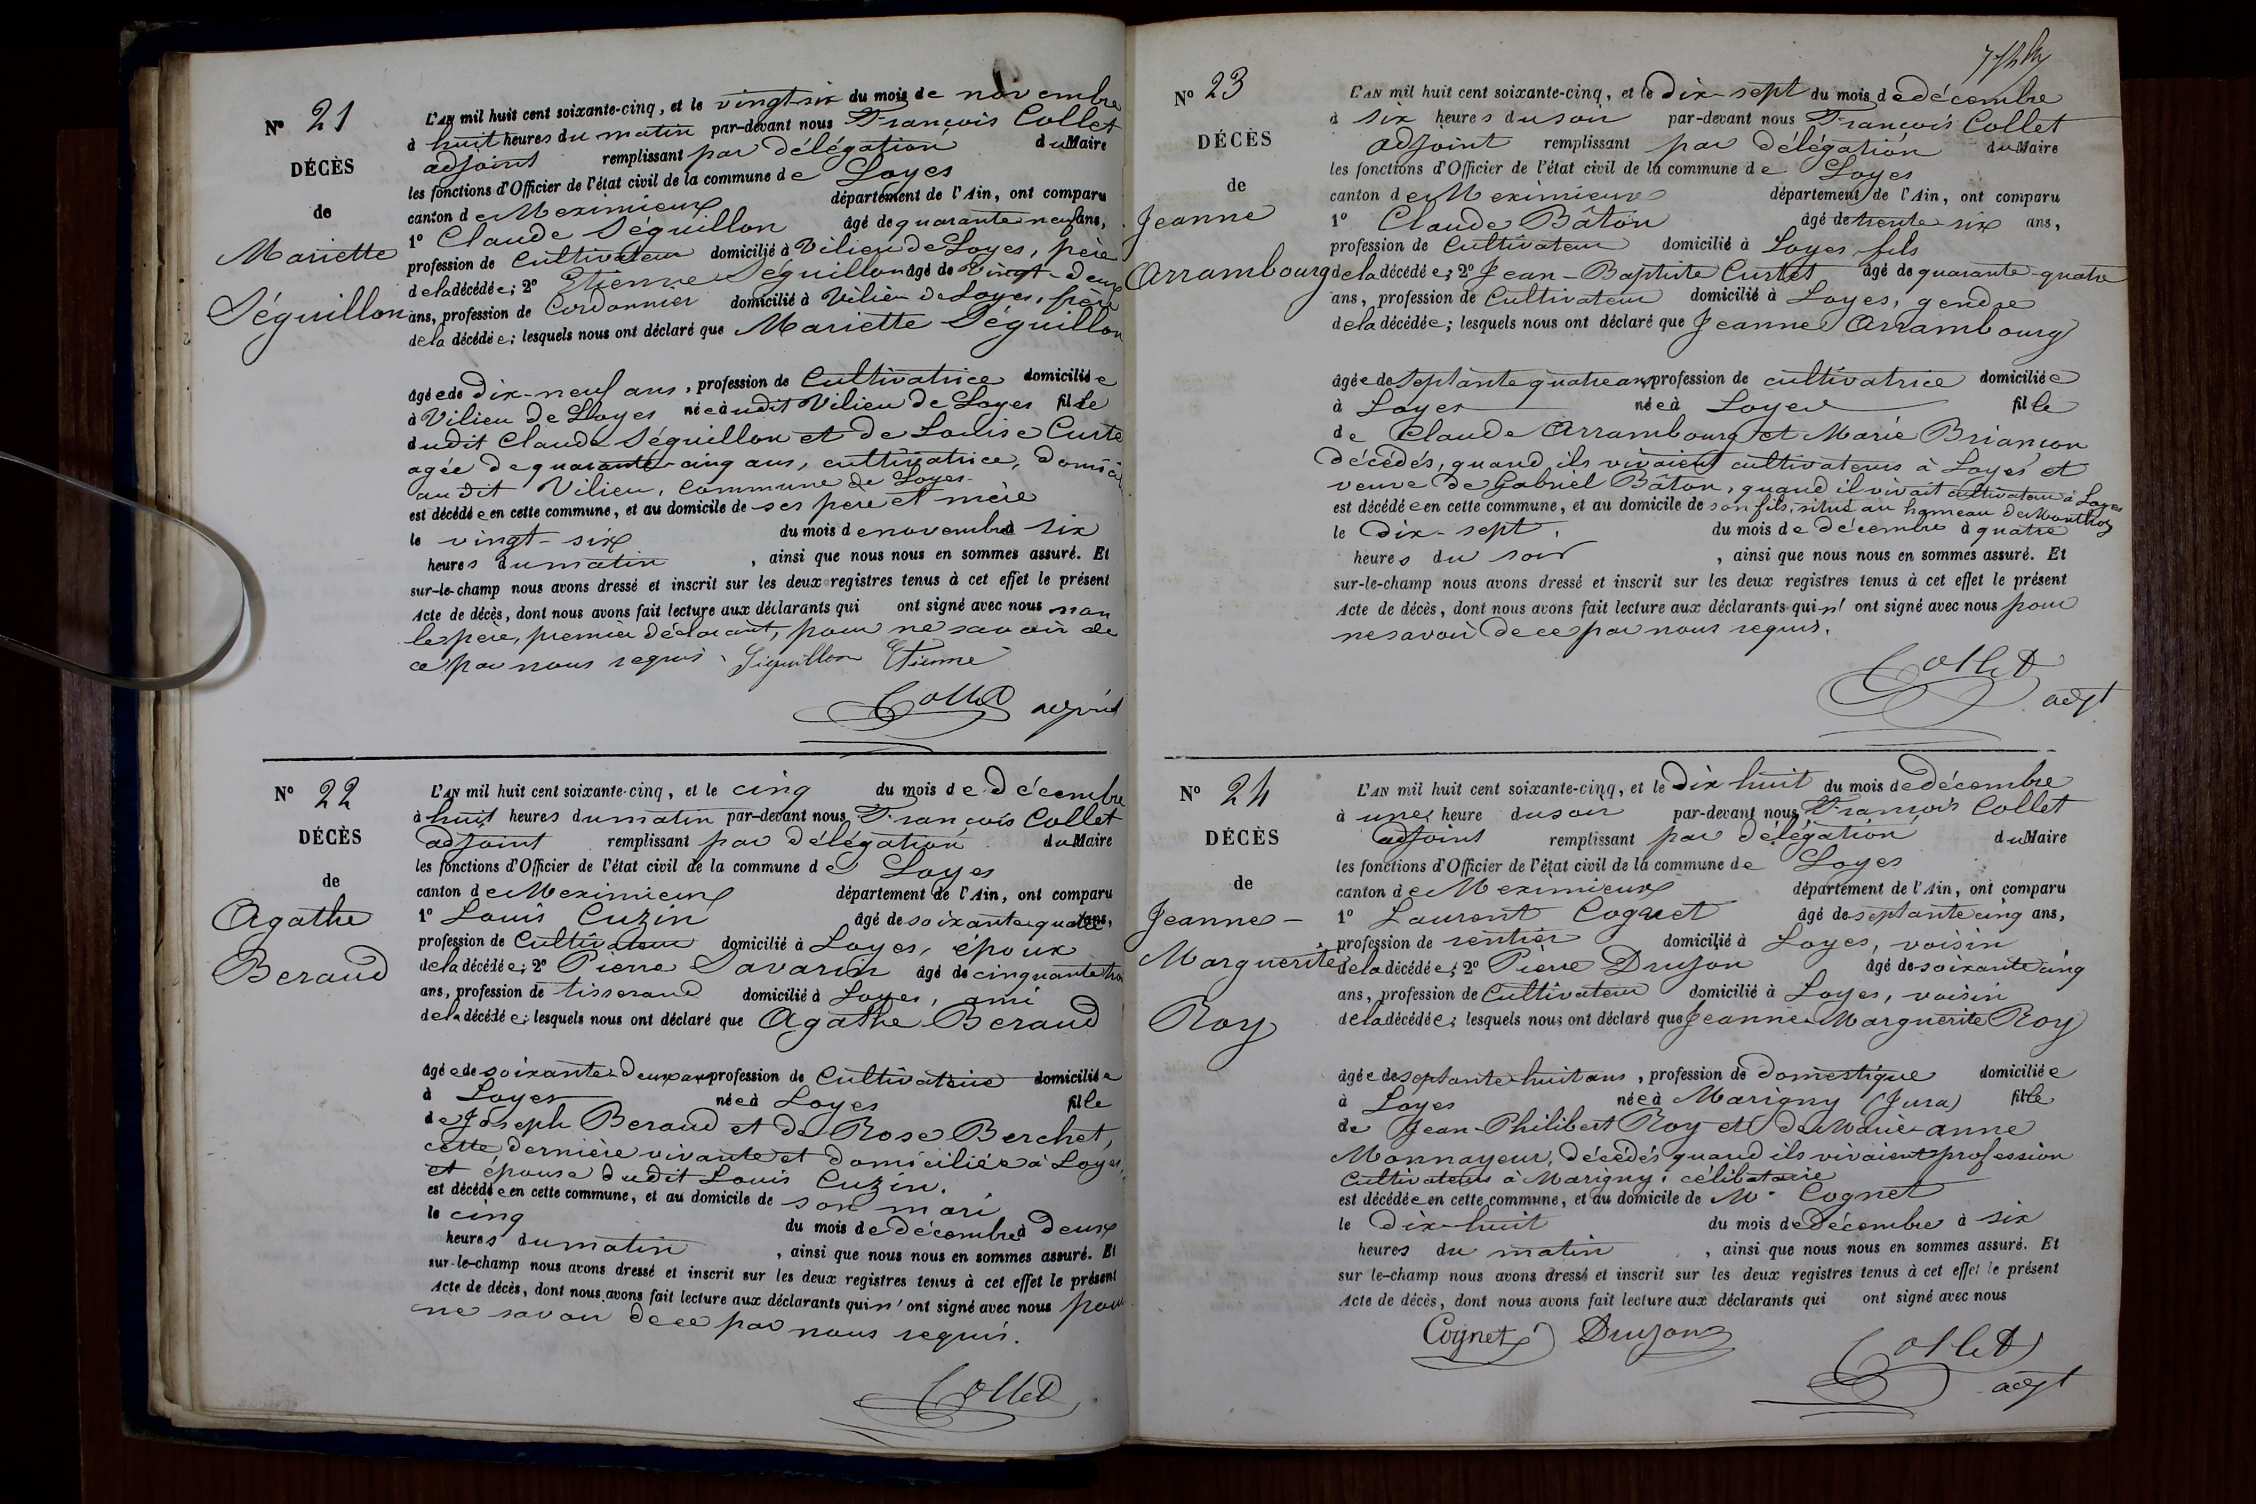 N° 21
DÉCÈS
de
Mariette
Séguillon
L'AN mil huit cent soixante-cinq, et le vingt-six du mois de novembre
à huit heures du matin par-devant nous François Collet
adjoint remplissant par délégation du Maire
les fonctions d'Officier de l'état civil de la commune de Loyes
canton de Meximieux département de l'Ain, ont comparu
1° Claude Séguillon âgé de quarante neuf ans,
profession de Cultivateur domicilié à Vilieu de Loyes, père
de la décédée; 2° Etienne Séguillon âgé de vingt-deux
ans, profession de Cordonnier domicilié à Vilieu de Loyes, frère
de la décédée; lesquels nous ont déclaré que Mariette Séguillon
âgée de Dix-neuf ans, profession de Cultivatrice domiciliée
à Vilieu de Loyes née audit Vilieu de Loyes fille
dudit Claude Séguillon et de Louise Curte
agée de quarante-cinq ans, cultivatrice, domici
au dit Vilieu, commune de Loyes.
est décédée en cette commune, et au domicile de ses père et mère
le vingt-six du mois de novembre à six
heures du matin, ainsi que nous nous en sommes assuré. Et
sur-le-champ nous avons dressé et inscrit sur les deux registres tenus à cet effet le présent
Acte de décès, dont nous avons fait lecture aux déclarants qui ont signé avec nous non
le père, premier déclarant, pour ne savoir de
ce par nous requis. Siguillon Etienne
Collet
N° 22
DÉCÈS
de
Agathe
Beraud
L'AN mil huit cent soixante-cinq, et le cinq du mois de décembre
à huit heures du matin par-devant nous François Collet
adjoint remplissant par délégation du Maire
les fonctions d'Officier de l'état civil de la commune de Loyes
canton de Meximieux département de l'Ain, ont comparu
1° Louis Cuzin âgé de soixante quatre ans,
profession de Cultivateur domicilié à Loyes, époux
de la décédée; 2° Pierre Savarin âgé de cinquante trois
ans, profession de tisserand domicilié à Loyes, ami
de la décédée; lesquels nous ont déclaré que Agathe Beraud
âgée de soixante-deux ans profession de Cultivatrice domiciliée
à Loyes née à Loyes fille
de Joseph Beraud et de Rose Berchet,
cette dernière vivante et domiciliée à Loyes,
et épouse dudit Louis Cuzin.
est décédée en cette commune, et au domicile de son mari
le cinq du mois de décembre à deux
heures du matin, ainsi que nous nous en sommes assuré. Et
sur-le-champ nous avons dressé et inscrit sur les deux registres tenus à cet effet le présent
Acte de décès, dont nous avons fait lecture aux déclarants qui n'ont signé avec nous pour
ne savoir de ce par nous requis.
Collet
N° 23
DÉCÈS
de
Jeanne
Arrambourg
L'AN mil huit cent soixante-cinq, et le dix-sept du mois de décembre
à six heures du soir par-devant nous François Collet
adjoint remplissant par délégation du Maire
les fonctions d'Officier de l'état civil de la commune de Loyes
canton de Meximieux département de l'Ain, ont comparu
1° Claude Bâton âgé de trente six ans,
profession de Cultivateur domicilié à Loyes fils
de la décédée; 2° Jean-Baptiste Curtet âgé de quarante-quatre
ans, profession de Cultivateur domicilié à Loyes, gendre
de la décédée; lesquels nous ont déclaré que Jeanne Arrambourg
âgée de septante quatre ans profession de cultivatrice domiciliée
à Loyes née à Loyes fille
de Claude Arrambourg et Marie Briançon
décédés, quand ils vivaient cultivateurs à Loyes et
veuve de Gabriel Bâton, quand il vivait cultivateur à Loyes
est décédée en cette commune, et au domicile de son fils, situé au hameau de Monthoz
le dix-sept. du mois de décembre à quatre
heures du soir, ainsi que nous nous en sommes assuré. Et
sur-le-champ nous avons dressé et inscrit sur les deux registres tenus à cet effet le présent
Acte de décès, dont nous avons fait lecture aux déclarants qui n'ont signé avec nous pour
ne savoir de ce par nous requis.
Collet
adjt
N° 24
DÉCÈS
de
Jeanne-
Marguerite
Roy
L'AN mil huit cent soixante-cinq, et le dix huit du mois de décembre
à une heure du soir par-devant nous François Collet
adjoint remplissant par délégation du Maire
les fonctions d'Officier de l'état civil de la commune de Loyes
canton de Meximieux département de l'Ain, ont comparu
1° Laurent Cognet âgé de septante cinq ans,
profession de rentier domicilié à Loyes, voisin
de la décédée; 2° Pierre Drujon âgé de soixante cinq
ans, profession de Cultivateur domicilié à Loyes, voisin
de la décédée; lesquels nous ont déclaré que Jeanne Marguerite Roy
âgée de septante huit ans, profession de domestique domiciliée
à Loyes née à Marigny (Jura) fille
de Jean-Philibert Roy et de Marie-anne
Monnayeur, décédés quand ils vivaient profession
Cultivateurs à Marigny; célibataire
est décédée en cette commune, et au domicile de Mr Cognet
le dix-huit du mois de décembre à six
heures du matin, ainsi que nous nous en sommes assuré. Et
sur le-champ nous avons dressé et inscrit sur les deux registres tenus à cet effet le présent
Acte de décès, dont nous avons fait lecture aux déclarants qui ont signé avec nous
Cognet Drujon
Collet
adjt